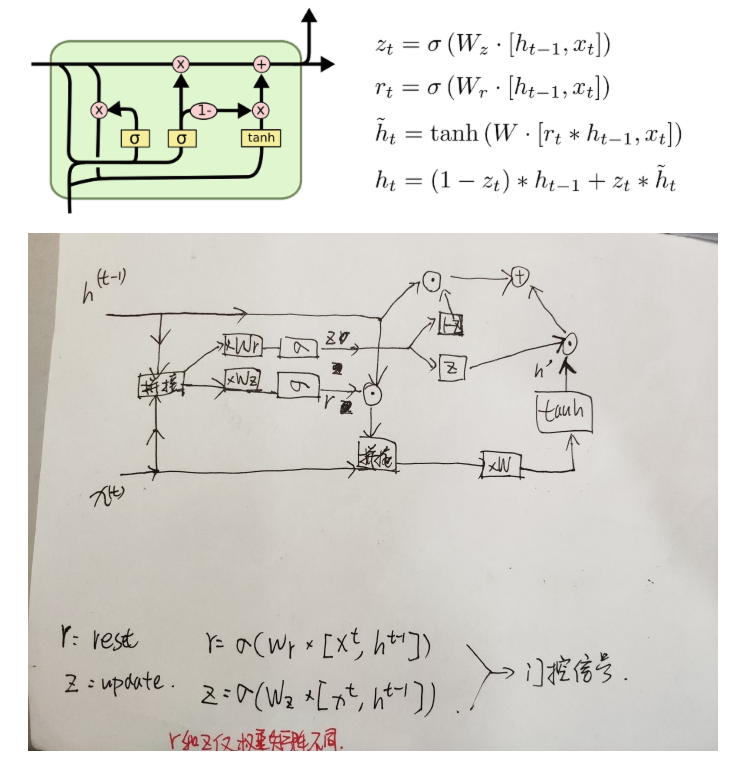 z_t = σ (W_z · [h_{t−1}, x_t])
r_t = σ (W_r · [h_{t−1}, x_t])
h̃_t = tanh (W · [r_t * h_{t−1}, x_t])
h_t = (1 − z_t) * h_{t−1} + z_t * h̃_t
× +
× 1- ×
σ σ tanh
h^(t-1)
×Wr σ z 1-z
拼接 ×Wz σ r z h'
tanh
拼接 ×W
x(t)
r: reset r = σ(Wr × [x^t, h^{t-1}])
z: update. z = σ(Wz × [x^t, h^{t-1}]). 门控信号.
r和z仅权重矩阵不同.